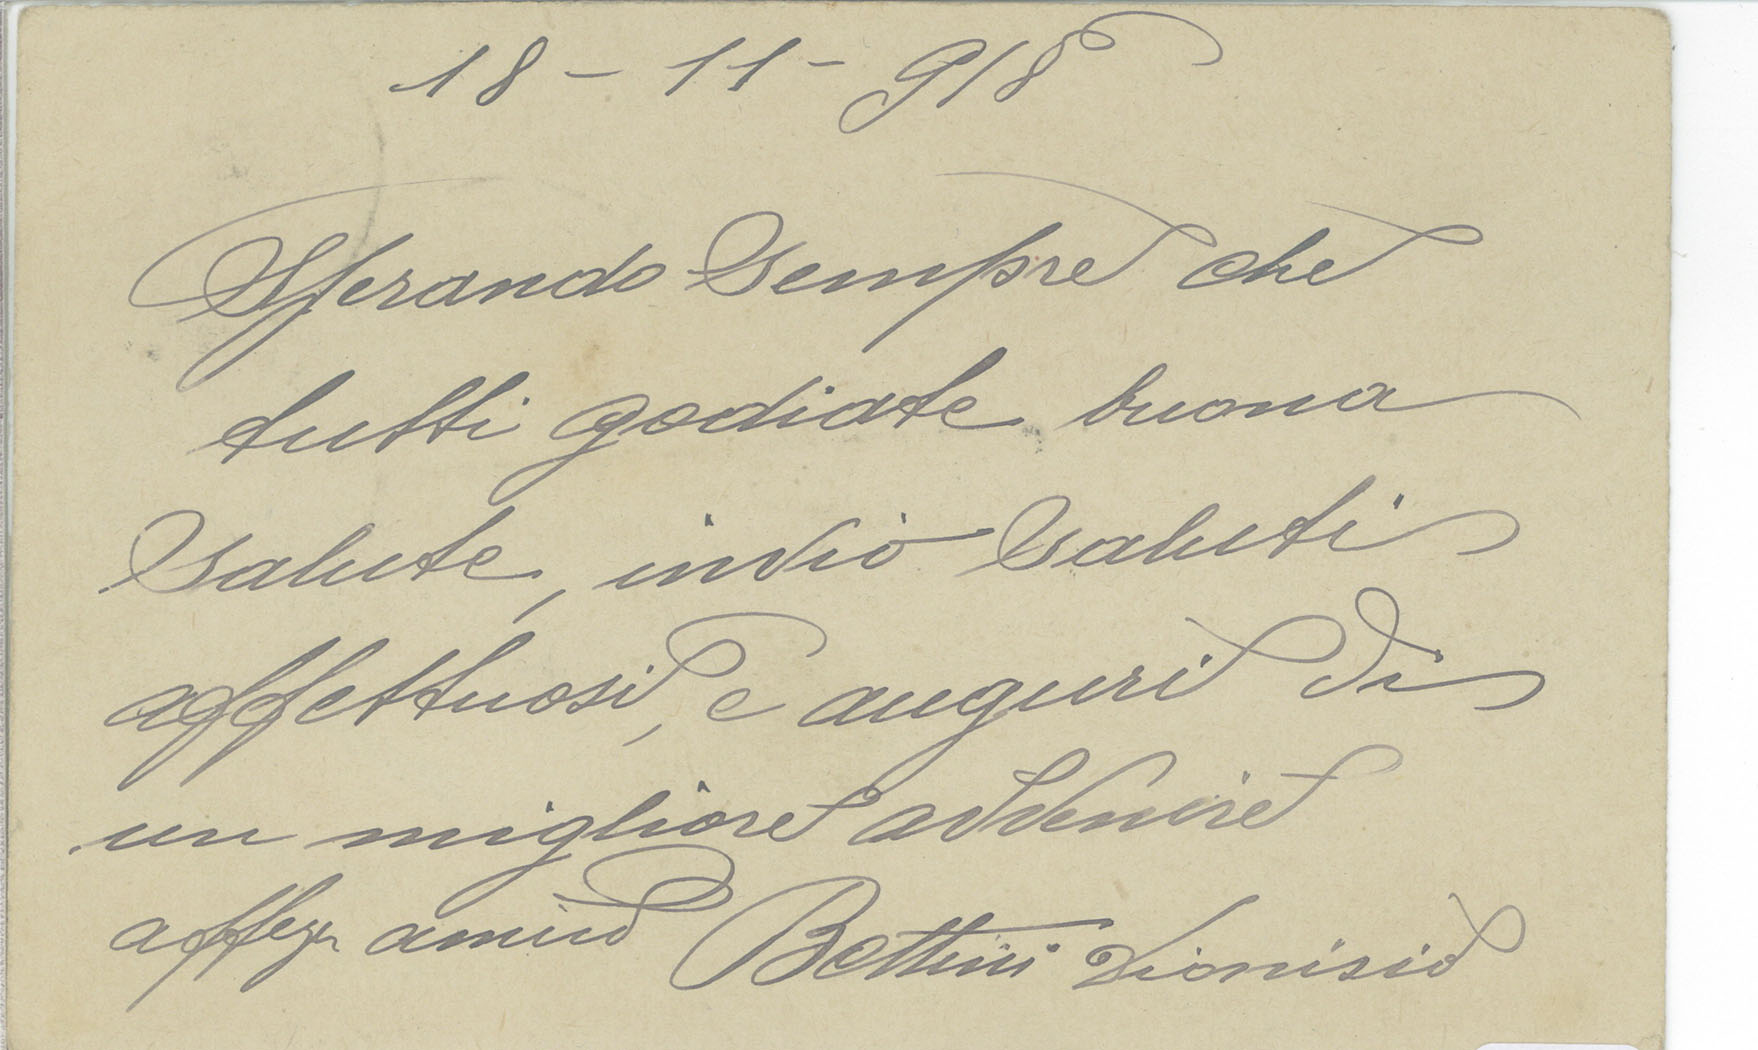 18 - 11 - 918
Sperando sempre che
tutti godiate buona
salute, invio saluti
affettuosi, e auguri di
un migliore avvenire
amico Bettini Dionisio